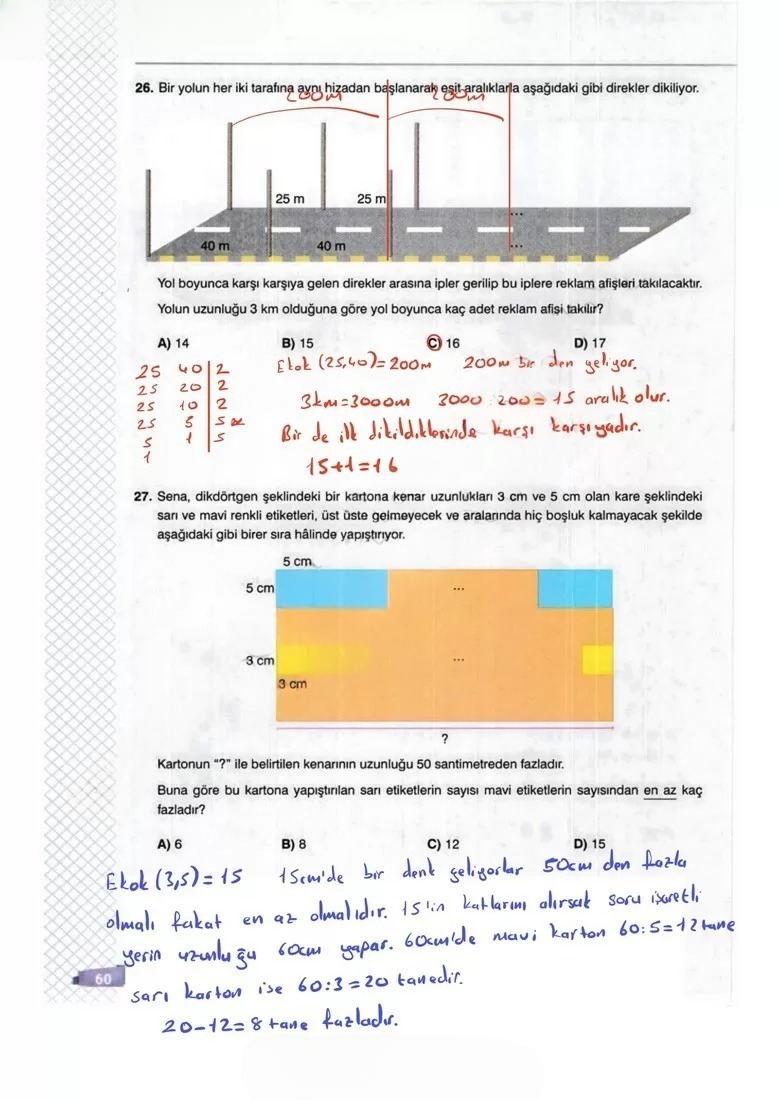 26. Bir yolun her iki tarafına aynı hizadan başlanarak eşit aralıklarla aşağıdaki gibi direkler dikiliyor.
200m 200m
25 m 25 m
...
40 m 40 m ...
Yol boyunca karşı karşıya gelen direkler arasına ipler gerilip bu iplere reklam afişleri takılacaktır.
Yolun uzunluğu 3 km olduğuna göre yol boyunca kaç adet reklam afişi takılır?
A) 14 B) 15 C) 16 D) 17
25 40 2
25 20 2
25 10 2
25 5 5
5 1 5
1
Ekok (25,40)=200m 200m bir den geliyor.
3km=3000m 3000:200=15 aralık olur.
Bir de ilk dikildiklerinde karşı karşıyadır.
15+1=16
27. Sena, dikdörtgen şeklindeki bir kartona kenar uzunlukları 3 cm ve 5 cm olan kare şeklindeki
sarı ve mavi renkli etiketleri, üst üste gelmeyecek ve aralarında hiç boşluk kalmayacak şekilde
aşağıdaki gibi birer sıra hâlinde yapıştırıyor.
5 cm
5 cm ...
3 cm ...
3 cm
?
Kartonun "?" ile belirtilen kenarının uzunluğu 50 santimetreden fazladır.
Buna göre bu kartona yapıştırılan sarı etiketlerin sayısı mavi etiketlerin sayısından en az kaç
fazladır?
A) 6 B) 8 C) 12 D) 15
Ekok (3,5)=15 15cm'de bir denk geliyorlar 50cm den fazla
olmalı fakat en az olmalıdır. 15'in katlarını alırsak soru işaretli
yerin uzunluğu 60cm yapar. 60cm'de mavi karton 60:5=12 tane
sarı karton ise 60:3=20 tanedir.
20-12=8 tane fazladır.
60